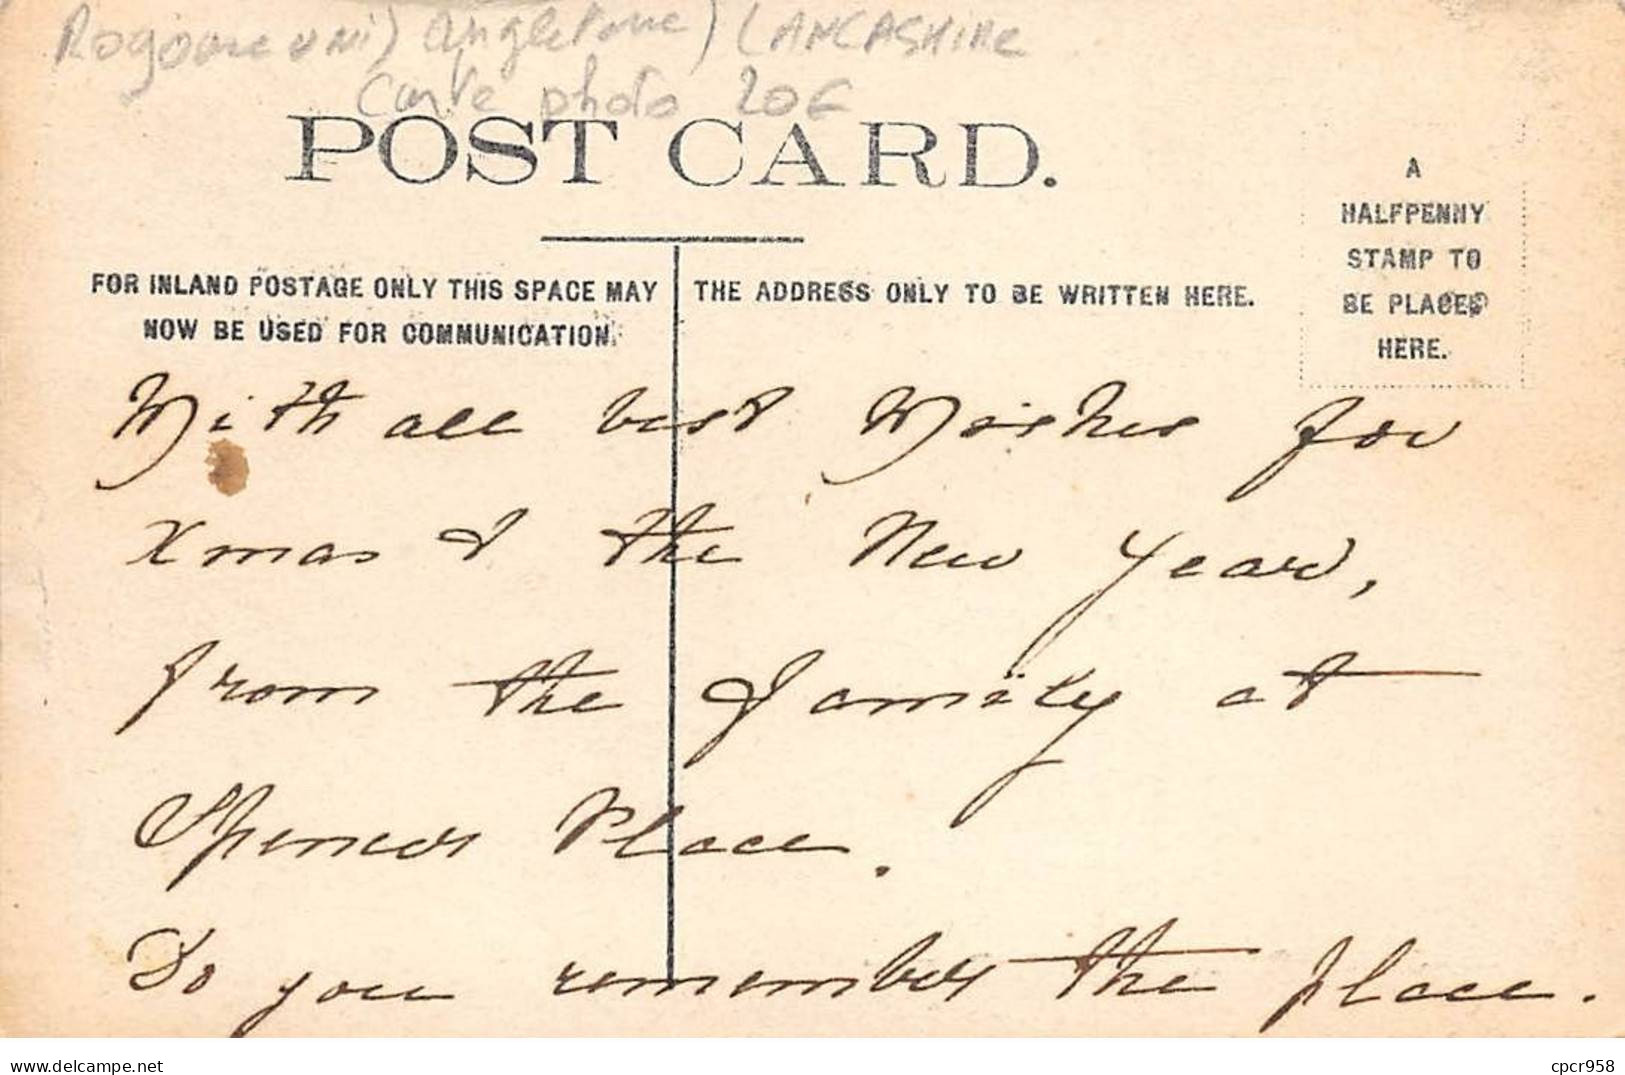 Rogoume uni) angleterre) LANCASHIRE
Carte photo 20€
POST CARD.
FOR INLAND POSTAGE ONLY THIS SPACE MAY
NOW BE USED FOR COMMUNICATION.
THE ADDRESS ONLY TO BE WRITTEN HERE.
A
HALFPENNY
STAMP TO
BE PLACED
HERE.
With all best Wishes for
Xmas & the New Year,
from the family at
Spencer Place.
Do you remember the place.
delcampe.net
cpcr958